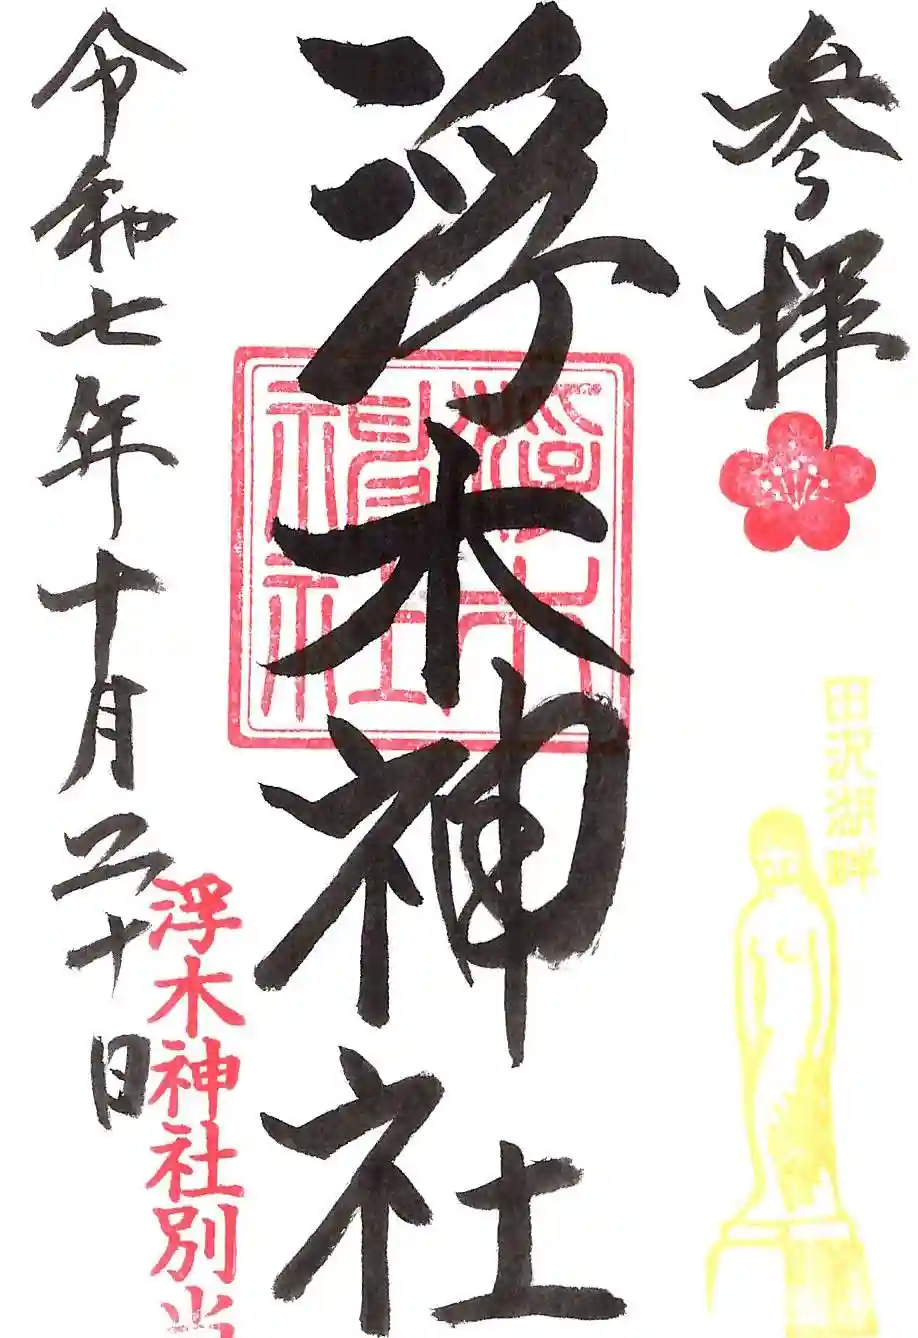 参拝
田沢湖畔
浮木神社
令和七年十月二十日
浮木神社別当